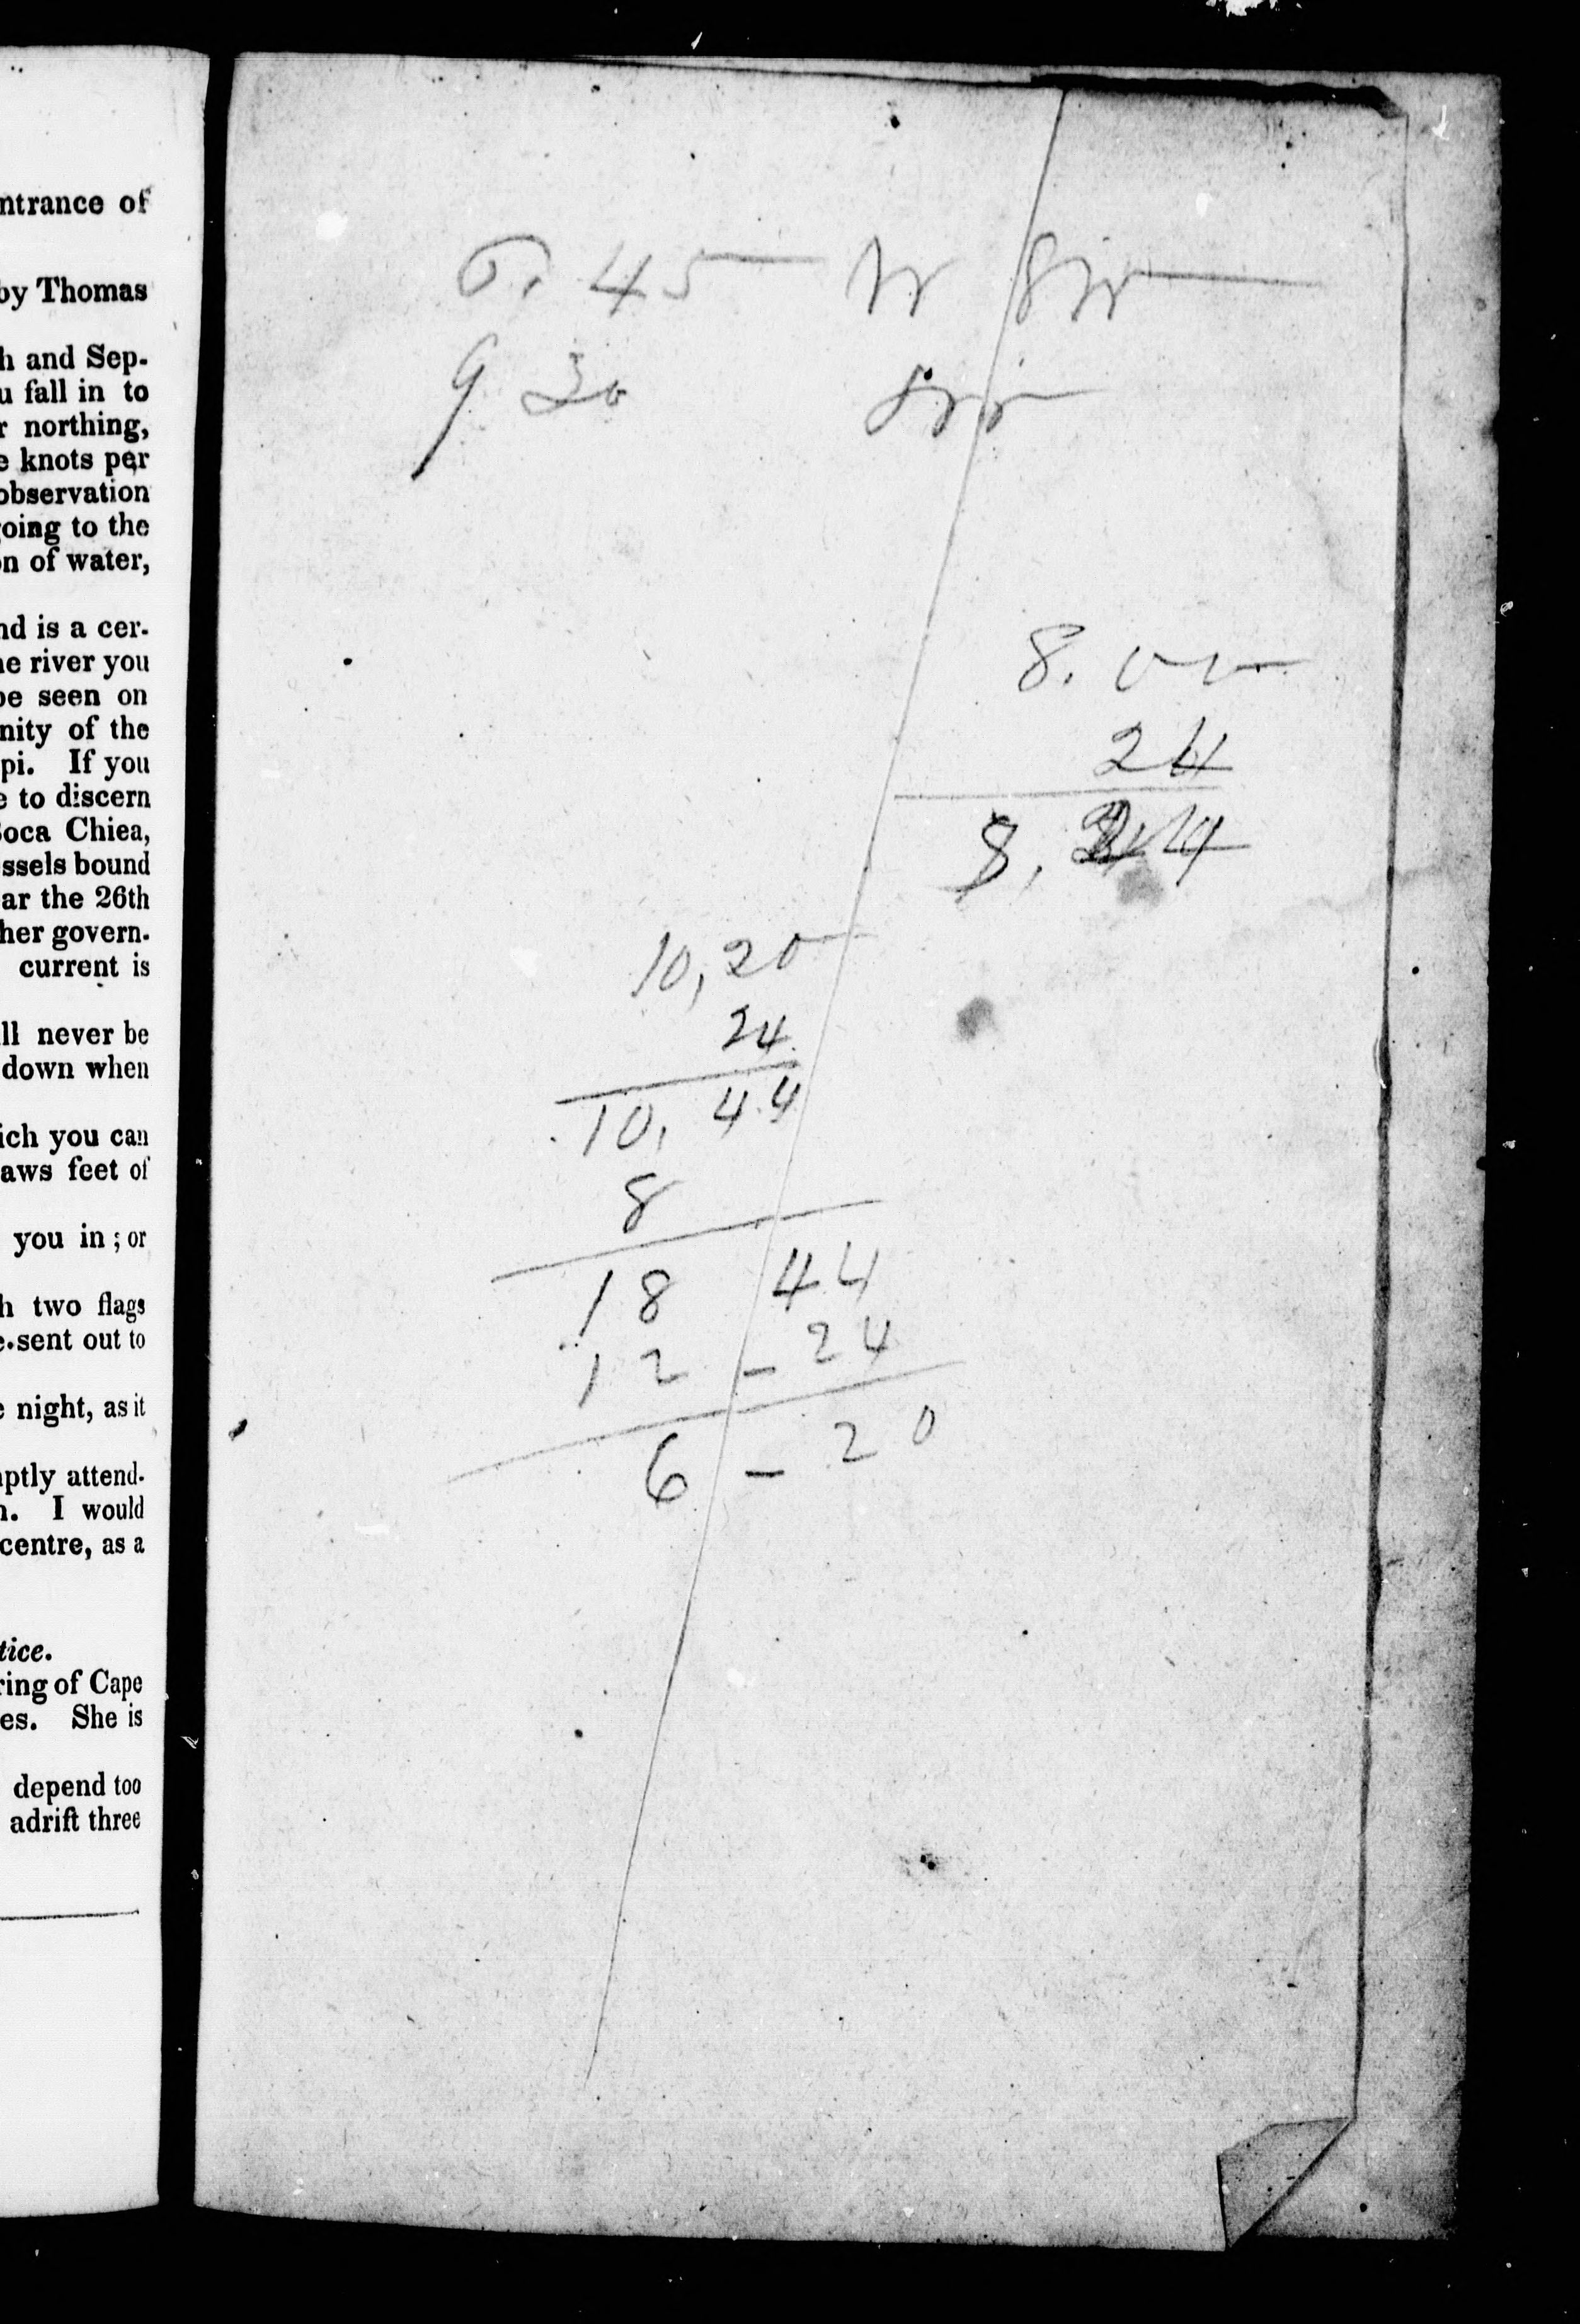 ntrance of
by Thomas
h and Sep-
u fall in to
r northing,
e knots per
observation
going to the
on of water,
nd is a cer-
he river you
be seen on
nity of the
pi. If you
e to discern
Boca Chiea,
ssels bound
ar the 26th
her govern-
current is
ll never be
down when
ich you can
aws feet of
you in; or
h two flags
e sent out to
e night, as it
ptly attend-
n. I would
centre, as a
tice.
ring of Cape
es. She is
depend too
adrift three
45
9 30
8.00
24
8, 24
10,20
24
10, 44
8
18 44
12 - 24
6 - 20